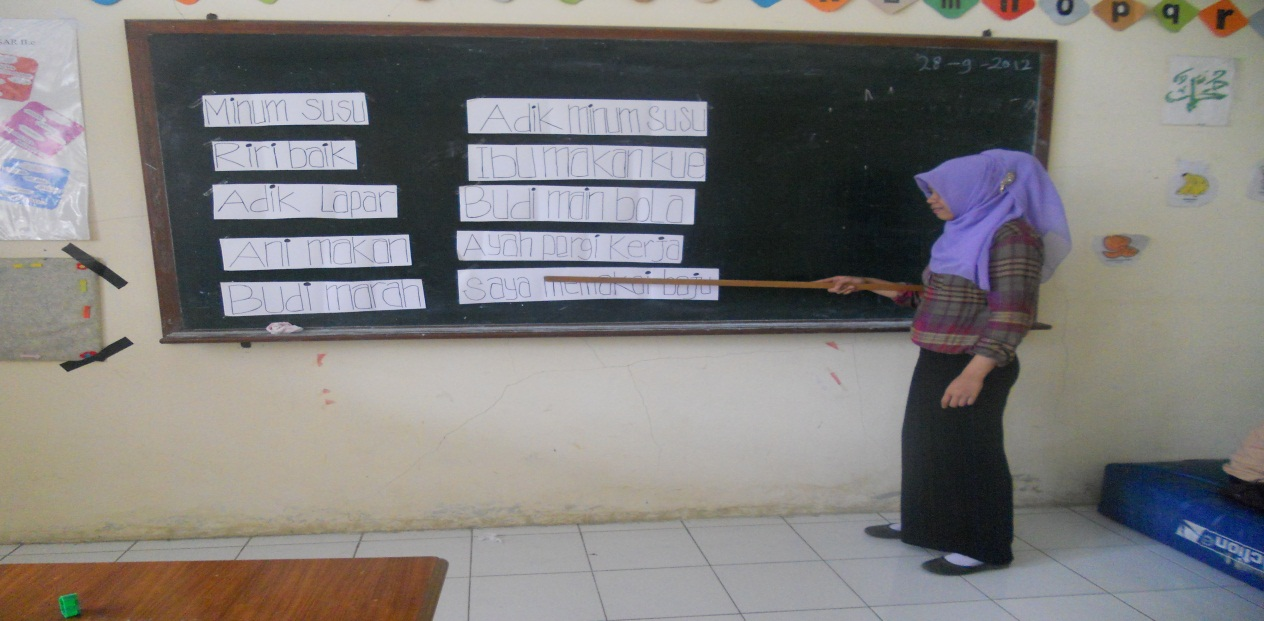 m n o p q r
28-9-2012
Minum susu
Riri baik
Adik Lapar
Ani makan
Budi marah
Adik minum susu
Ibu makan kue
Budi main bola
Ayah pergi kerja
Saya memakai baju